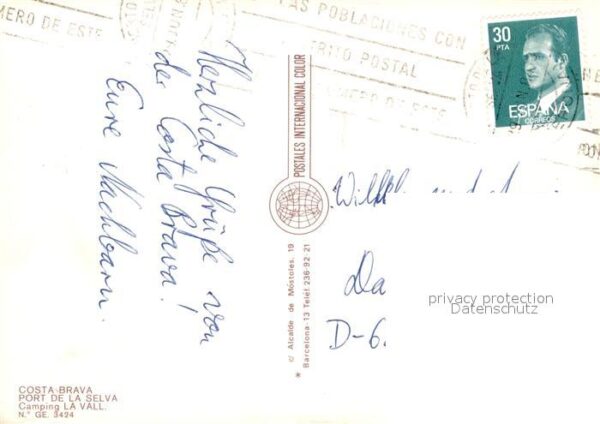 MERO DE ESTE
LAS POBLACIONES CON
TRITO POSTAL
MERO DE ESTE
30
PTA
ESPAÑA
CORREOS
Herzliche Grüße von
der Costa Brava!
Eure Nachbarn.
POSTALES INTERNACIONAL COLOR
c/ Alcalde de Móstoles, 19
* Barcelona-13 Teléf. 236 92 21
Da
D-6.
privacy protection
Datenschutz
COSTA BRAVA
PORT DE LA SELVA
Camping LA VALL.
N.° GE. 3424